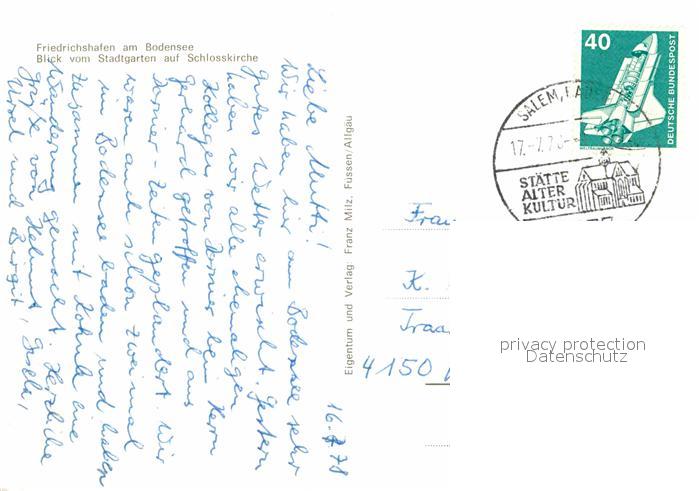 Friedrichshafen am Bodensee
Blick vom Stadtgarten auf Schlosskirche
16.7.78
Liebe Mutti!
Wir haben hier am Bodensee sehr
gutes Wetter erwischt. Gestern
haben wir alle ehemaligen
Kollegen von Dornier bei Herrn
getroffen und aus
Dornier Zeiten geplaudert. Wir
waren auch schon zweimal
im Bodensee baden und haben
zusammen mit eine
Wanderung gemacht. Herzliche
Grüße von Helmut, Gisela,
Ursel und Birgit
Eigentum und Verlag Franz Milz, Füssen/Allgäu
40
DEUTSCHE BUNDESPOST
SALEM,
17.-7.78
STÄTTE
ALTER
KULTUR
Frau
K.
4150
privacy protection
Datenschutz